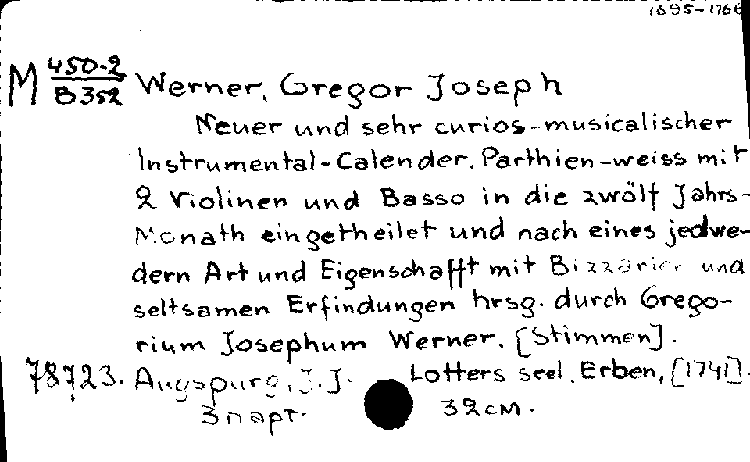 1695-1766
M 450-2
B 352
Werner, Gregor Joseph
Neuer und sehr curios-musicalischer
Instrumental-Calender, Parthien-weiss mit
2 Violinen und Basso in die zwölf Jahrs-
Monath eingetheilet und nach eines jedwe-
dern Art und Eigenschafft mit Bizzarien und
seltsamen Erfindungen hrsg. durch Grego-
rium Josephum Werner. [Stimmen].
78723. Augspurg, J. J. Lotters seel. Erben, [1741].
3 парт. 32 см.